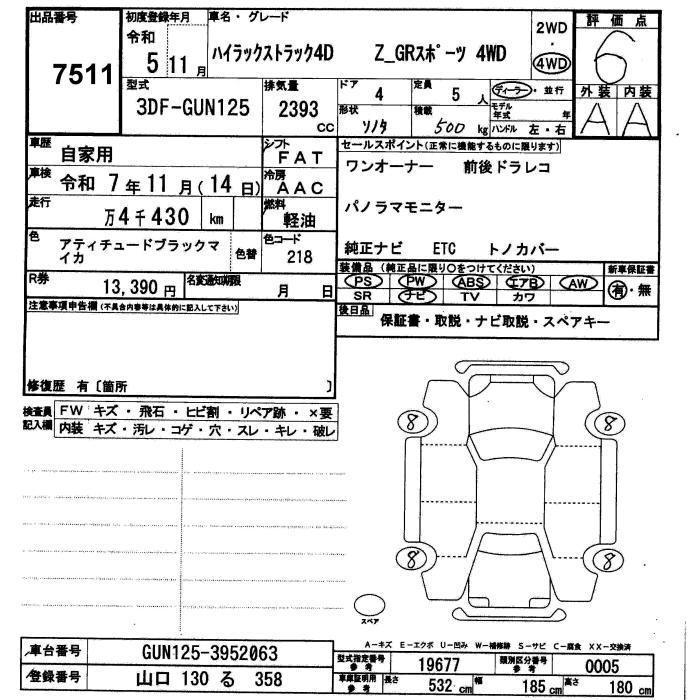 出品番号 7511
初度登録年月 令和 5 11 月
車名・グレード
ハイラックストラック4D Z_GRスポーツ 4WD
2WD・4WD
評価点 6
外装 内装
A A
型式 3DF-GUN125
排気量 2393 cc
ドア 4
定員 5 人
ディーラー・並行
形状 ソノタ
積載 500 kg
モデル年式 年
ハンドル 左・右
車歴 自家用
シフト FAT
車検 令和 7年 11月(14日)
冷房 AAC
走行 万4千430 km
燃料 軽油
色 アティチュードブラックマイカ
色替
色コード 218
R券 13,390円
名変通知期限 月 日
セールスポイント(正常に機能するものに限ります)
ワンオーナー 前後ドラレコ
パノラマモニター
純正ナビ ETC トノカバー
装備品(純正品に限り○をつけてください)
新車保証書
PS PW ABS エアB AW
有・無
SR ナビ TV カワ
後日品 保証書・取説・ナビ取説・スペアキー
注意事項申告欄(不具合内容等は具体的に記入して下さい)
修復歴 有〔箇所 〕
検査員記入欄
FW キズ・飛石・ヒビ割・リペア跡・×要
内装 キズ・汚レ・コゲ・穴・スレ・キレ・破レ
8 8
8 8
スペア
A-キズ E-エクボ U-凹み W-補修跡 S-サビ C-腐食 XX-交換済
車台番号 GUN125-3952063
登録番号 山口 130 る 358
型式指定番号 参考 19677
類別区分番号 参考 0005
車庫証明用 参考 長さ 532 cm 幅 185 cm 高さ 180 cm